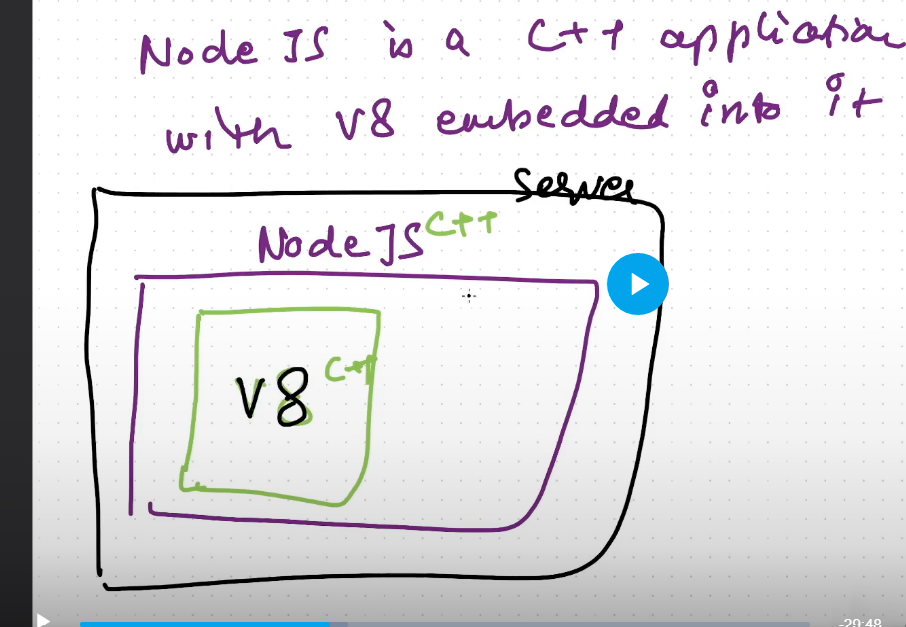 Node JS is a C++ application
with V8 embedded into it
Server
Node JS C++
V8 C++
-29:48